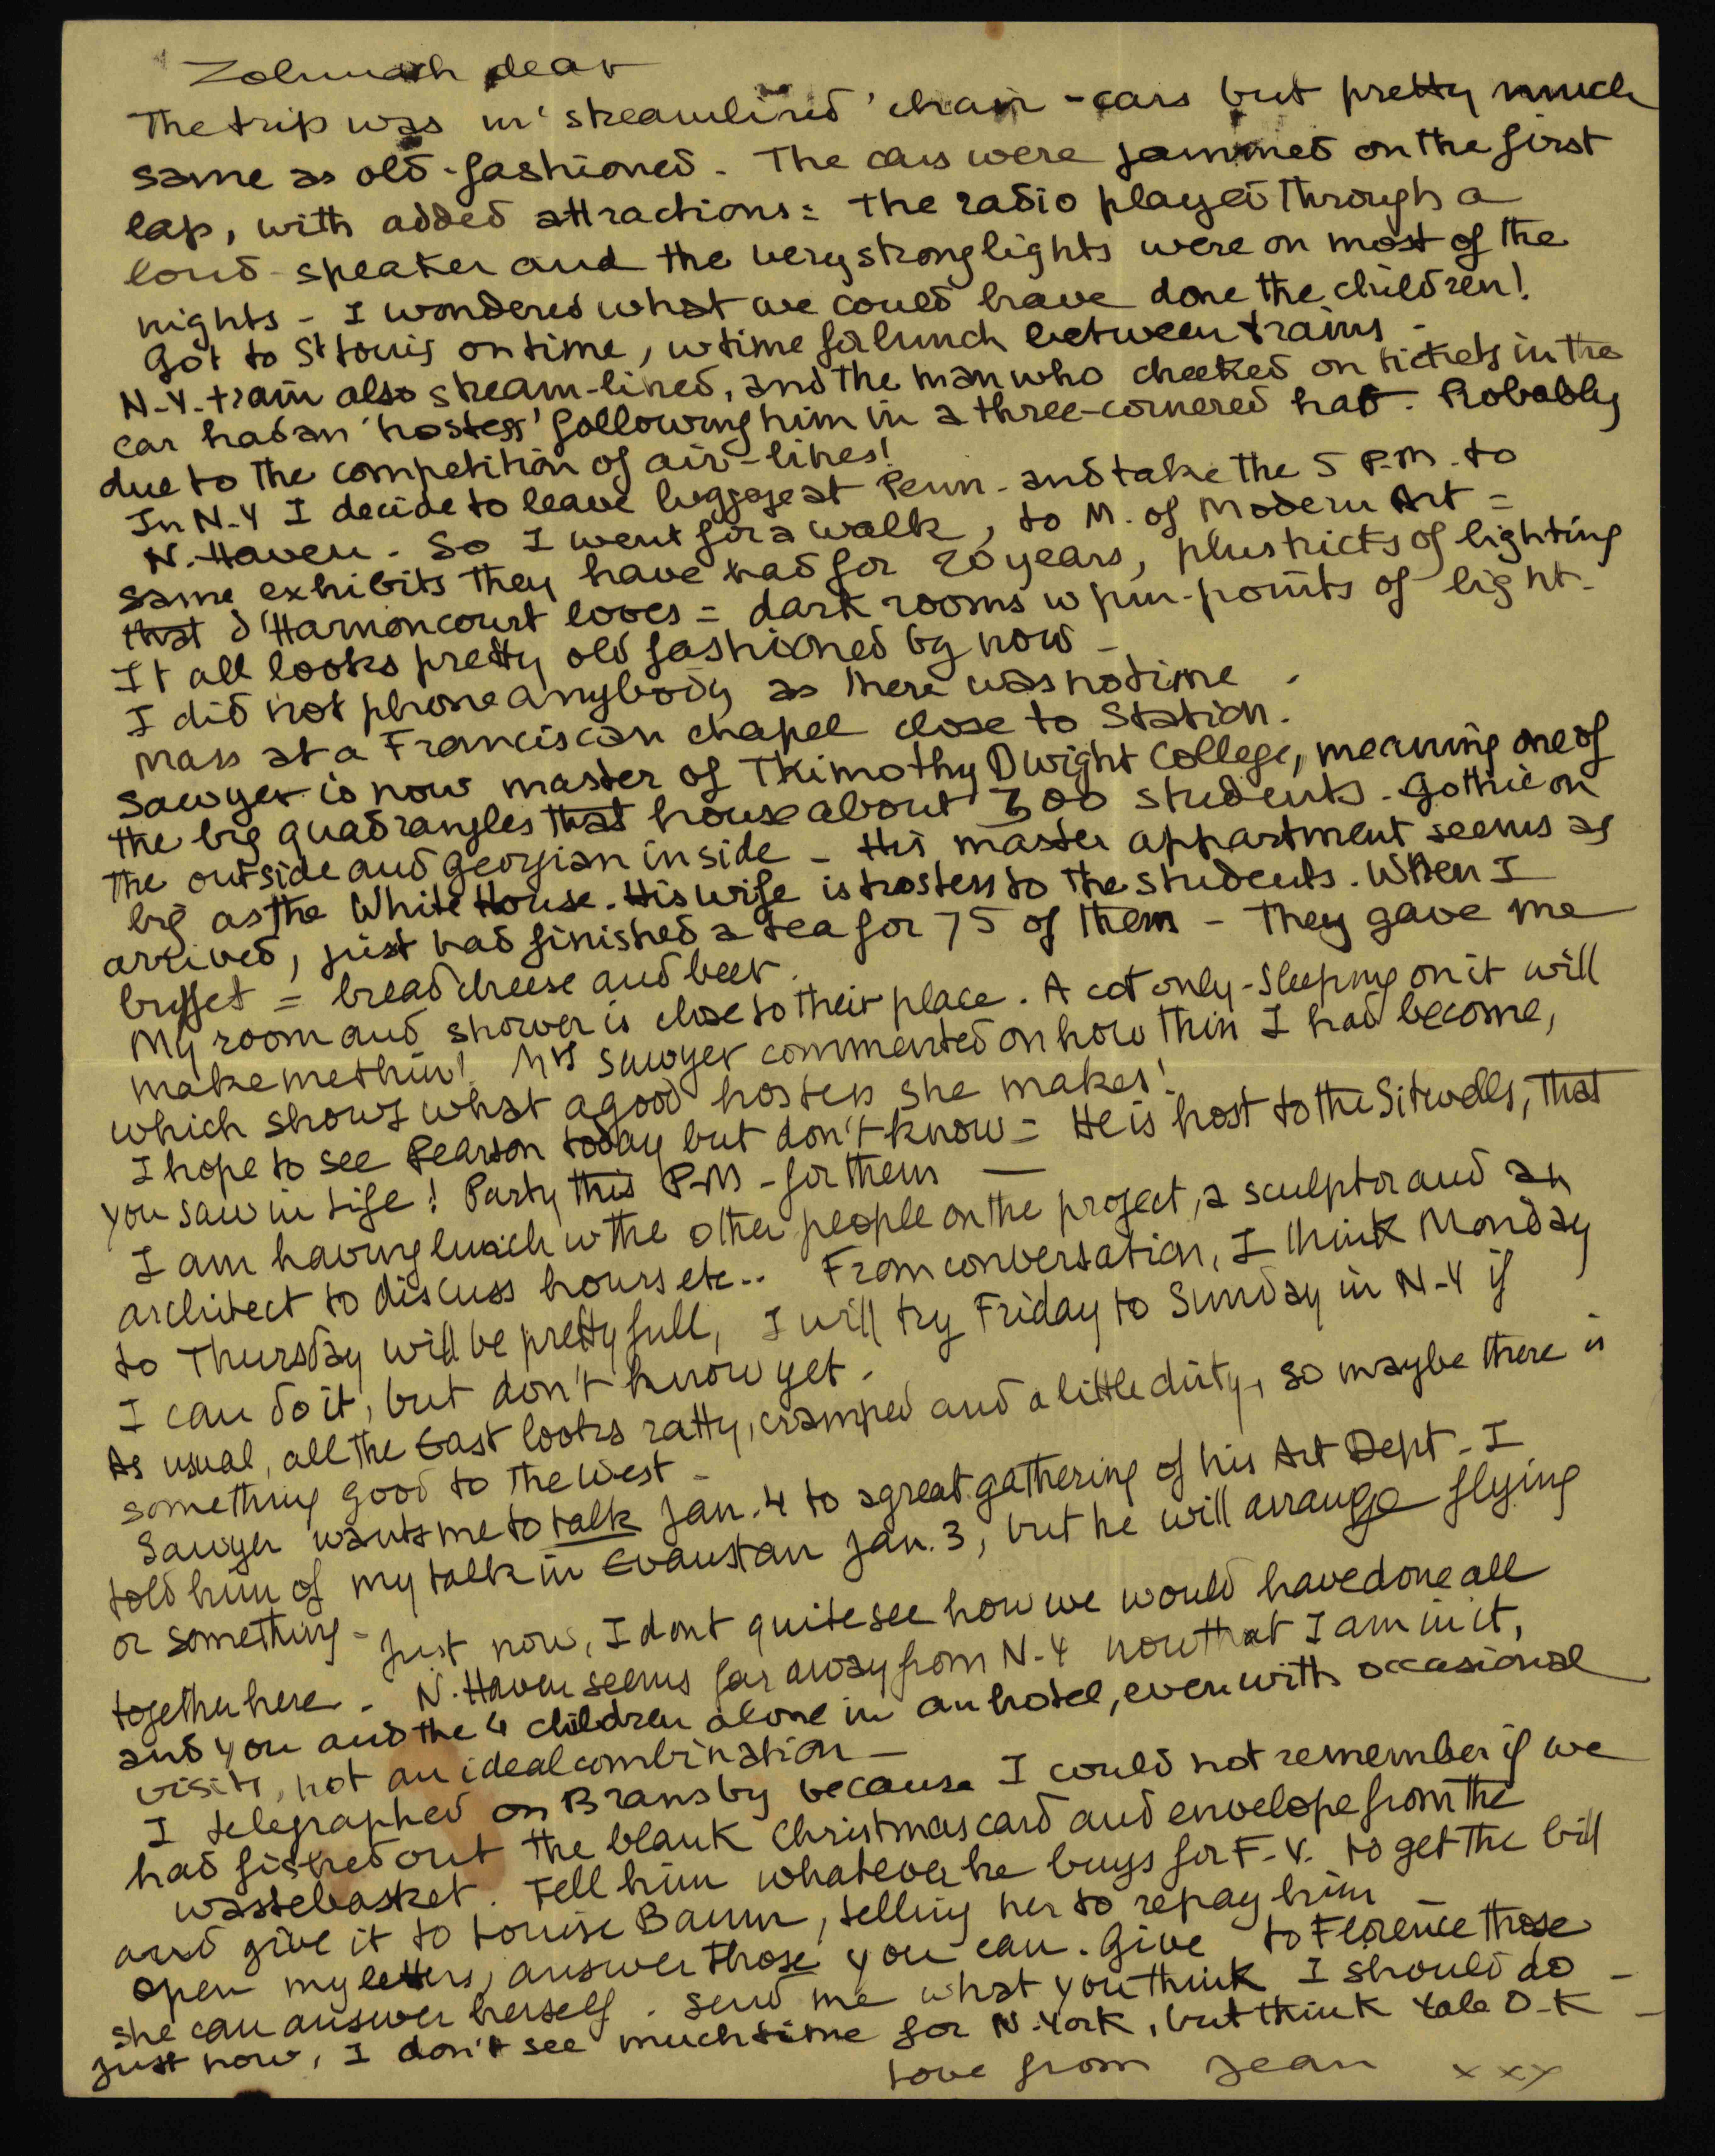 Zohmah dear
The trip was in 'streamlined' chair-cars but pretty much
same as old-fashioned. The cars were jammed on the first
lap, with added attractions = the radio played through a
loud-speaker and the very strong lights were on most of the
nights - I wondered what we could have done the children!
Got to St Louis on time, w time for lunch between trains -
N-Y- train also stream-lined, and the man who checked on tickets in the
car had an 'hostess' following him in a three-cornered hat. Probably
due to the competition of air-lines!
In N-Y I decide to leave luggage at Penn- and take the 5 P.M. to
N. Haven. So I went for a walk, to M. of Modern Art =
same exhibits they have had for 20 years, plus tricks of lighting
that d'Harnoncourt loves = dark rooms w pin-points of light-
It all looks pretty old fashioned by now -
I did not phone anybody as there was no time.
Mass at a Franciscan chapel close to Station.
Sawyer is now master of Tkimothy Dwight College, meaning one of
the big quadrangles that house about 300 students. Gothic on
the outside and georgian inside - His master appartment seems as
big as the White House. His wife is hostess to the students. When I
arrived, just had finished a tea for 75 of them - They gave me
buffet = bread cheese and beer.
My room and shower is close to their place. A cot only - Sleeping on it will
make me thin! Mrs Sawyer commented on how thin I had become,
which shows what a good hostess she makes!
I hope to see Pearson today but don't know = He is host to the Sitwells, that
you saw in Life! Party this P-M - for them —
I am having lunch w the other people on the project, a sculptor and an
architect to discuss hours etc.. From conversation, I think Monday
to Thursday will be pretty full, I will try Friday to Sunday in N-Y if
I can do it, but don't know yet.
As usual, all the East looks ratty, cramped and a little dirty, so maybe there is
something good to the West -
Sawyer wants me to talk Jan. 4 to a great gathering of his Art Dept - I
told him of my talk in Evanstan Jan. 3, but he will arrange flying
or something - Just now, I dont quite see how we would have done all
together here - N. Haven seems far away from N-Y now that I am in it,
and you and the 4 children alone in an hotel, even with occasional
visits, not an ideal combination —
I telegraphed on Bransby because I could not remember if we
had fished out the blank Christmas card and envelope from the
wastebasket. Tell him whatever he buys for F-V. to get the bill
and give it to Louise Baum, telling her to repay him -
Open my letters, answer those you can. Give to Florence those
she can answer herself. Send me what you think I should do -
Just now, I don't see much time for N. York, but think Yale O-K -
Love from Jean xxx